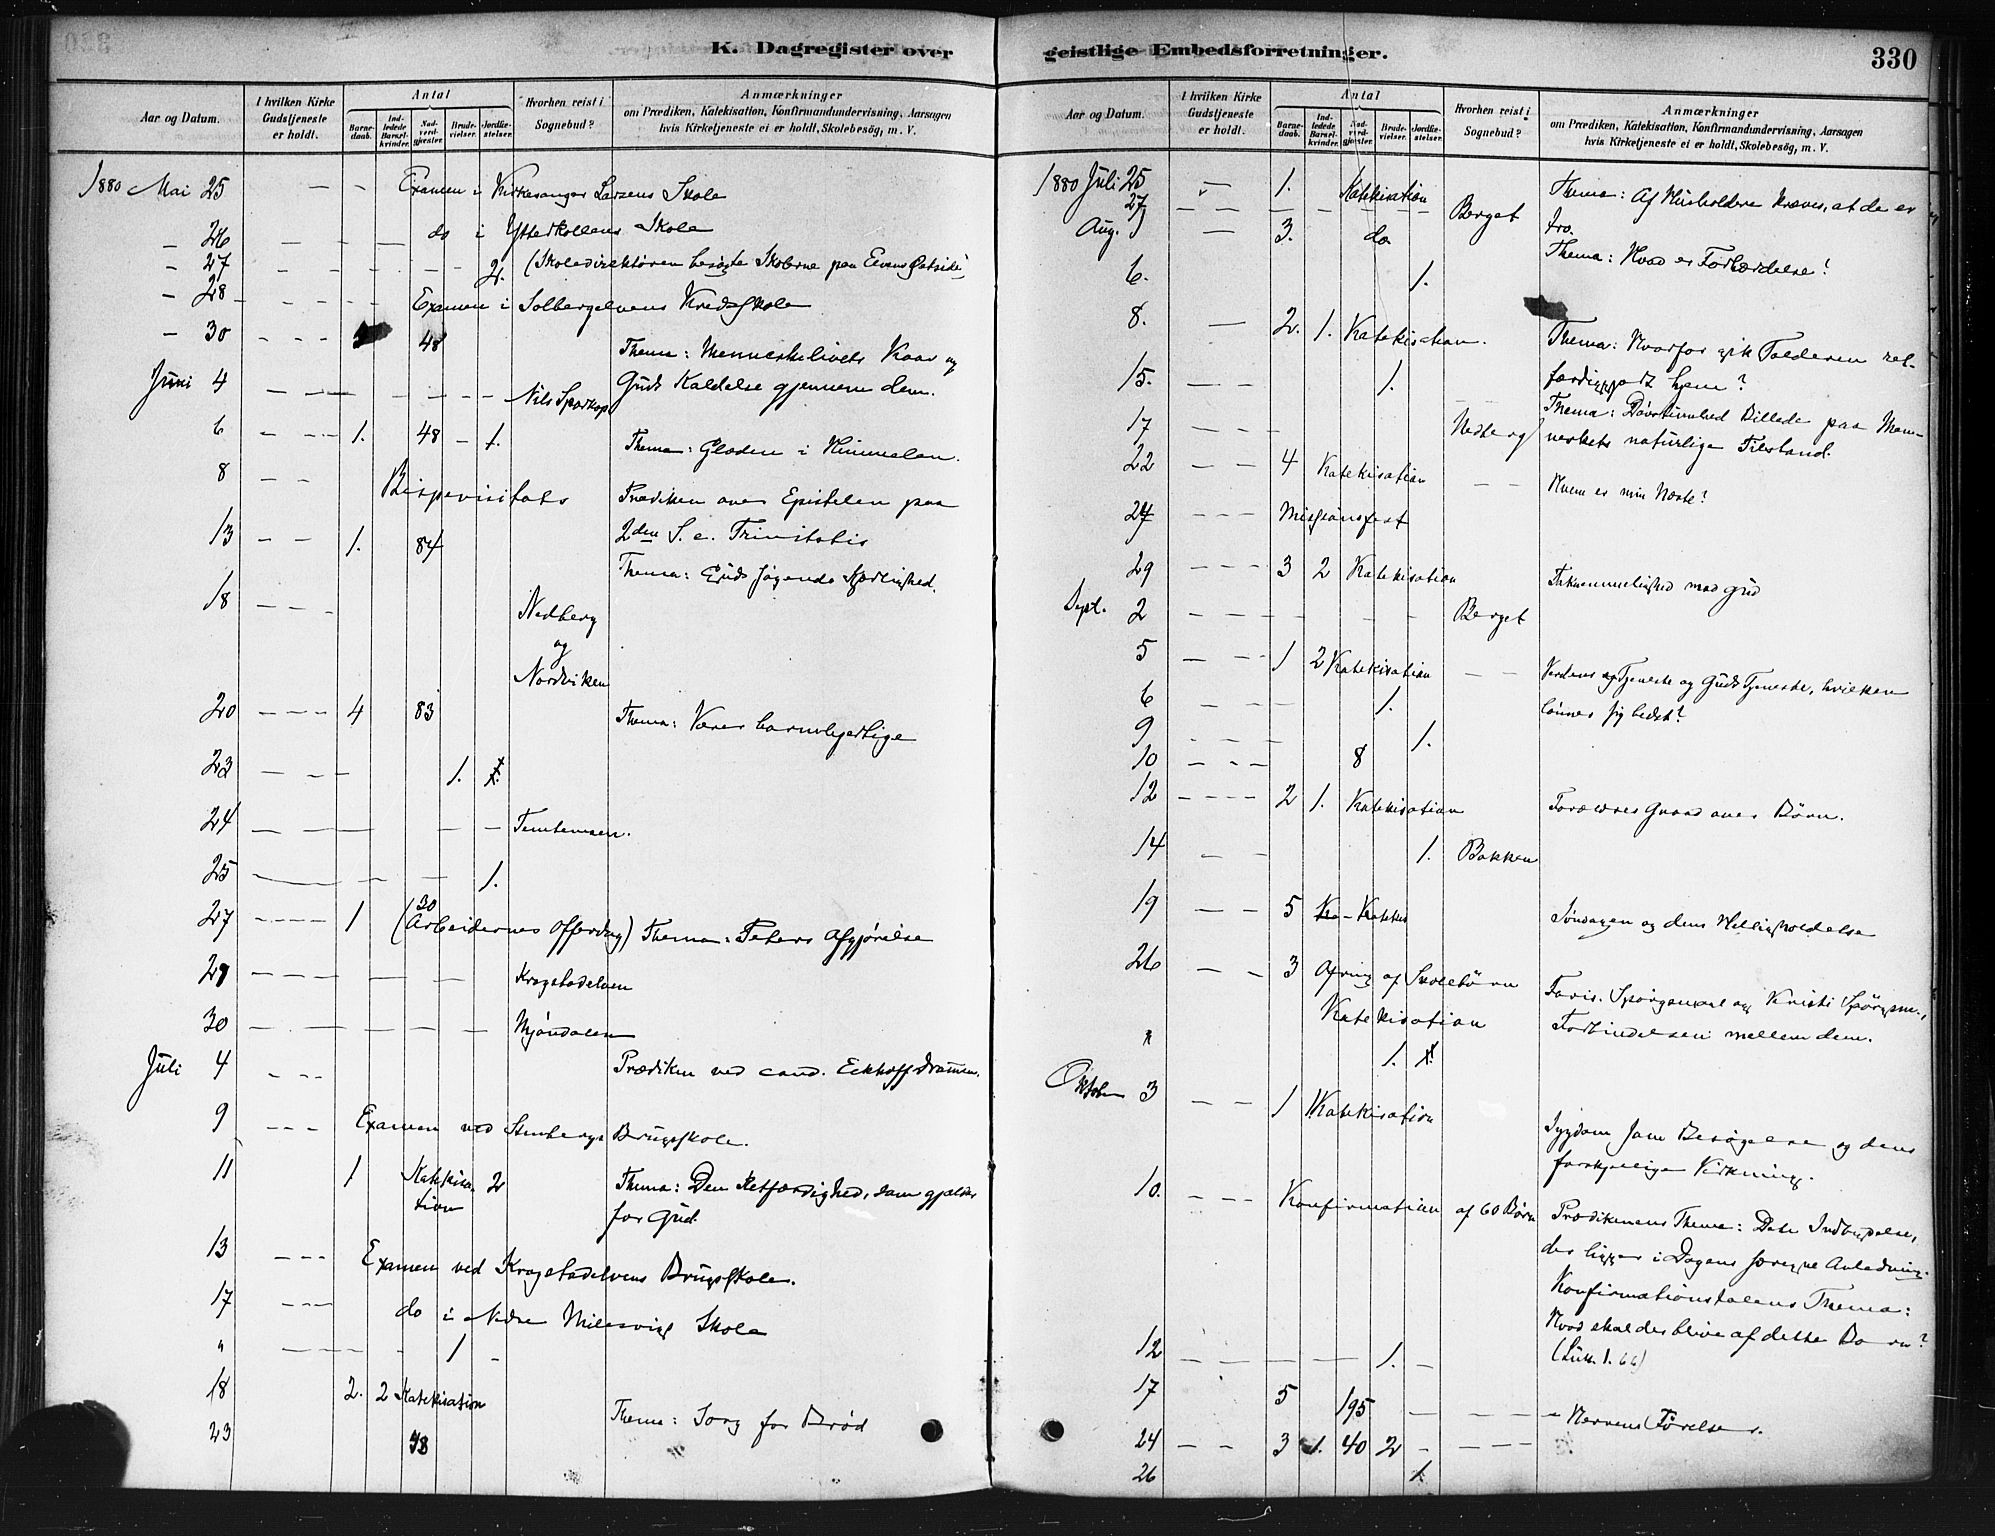 K. Dagregister over
Aar og Datum.
I hvilken Kirke Gudstjeneste er holdt.
Antal
Barnedaab.
Indledede Barselkvinder.
Nadverdgjester.
Brudevielser.
Jordfæstelser.
Hvorhen reist i Sognebud?
Anmærkninger
om Prædiken, Katekisation, Konfirmandundervisning, Aarsagen
hvis Kirketjeneste ei er holdt, Skolebesög, m. V.
1880 Mai 25 Examen i Kirkesanger Larsens Skole
26 do i Ytterkollens Skole
27 2. (Skoledirektören besögte Skolerne paa Elvens Østside)
28 Examen i Solbergelvens Kredsskole
30 48 Thema: Menneskelivets Kaar og
Guds Kaldelse gjennem dem.
Juni 4 Nils
6 1. 48 1. Thema: Glæden i Himmelen.
8 Bispevisitats Prædiken over Epistelen paa
2den S. e. Trinitatis
13 1. 84 Thema: Guds søgende Kjærlighed.
18 Nedberg
og
Nordviken
20 4 83 Thema: Værer barmhjertige
23 1.
24
25 1.
27 1 30 (Arbeidernes Offerdag) Thema: Peters Afgjörelse
29 Krogstadelven
30 Mjöndalen
Juli 4 Prædiken ved cand. Eckhoff Drammen.
9 Examen ved Stenbergs Brugsskole.
11 1 Katekisation 2 Thema: Den Retfærdighed, som gjælder
for Gud.
13 Examen ved Krogstadelvens Brugsskole.
17 do i Nedre Milesvig Skole
" 1
18 2. 2 Katekisation Thema: Sorg for Brød
23 48
geistlige Embedsforretninger.
330
Aar og Datum.
I hvilken Kirke Gudstjeneste er holdt.
Antal
Barnedaab.
Indledede Barselkvinder.
Nadverdgjester.
Brudevielser.
Jordfæstelser.
Hvorhen reist i Sognebud?
Anmærkninger
om Prædiken, Katekisation, Konfirmandundervisning, Aarsagen
hvis Kirketjeneste ei er holdt, Skolebesög, m. V.
1880 Juli 25 1. Katekisation Thema: Af Husholdere kræves, at de er
tro.
27 Berget
Aug. 1 3. do. Thema: Hvad er Fordærvelse?
6. 1.
8. 2. 1. Katekisation. Thema: Hvorfor gik Tolderen retfærdiggjort hjem?
15. 1. Thema: Døvstumhed Billede paa Menneskets naturlige Tilstand.
17 Nedberg
22 4 Katekisation Hvem er min Næste?
24 Missionsfest
29 3 2 Katekisation Taknemmelighed mod Gud
Sept. 2 Berget
5 1 2 Katekisation Verdens Tjeneste og Guds Tjeneste, hvilken
lönner sig bedst?
6 1.
9 1.
10 8
12 2 1. Katekisation Forældres Graad over Börn.
14 1. Bakken
19 5 Katekis Söndagen og dens Helligholdelse
26 3 af Skolebörn
Katekisation
Faris. Spörgsmaal og Kristi Spörgsm.,
Forbindelsen mellem dem.
" 1.
Oktober 3 1 1 Katekisation Sygdom som Besögelse og dens
forskjellige Virkning.
10. Konfirmation af 60 Börn Prædikenens Thema: Den Indbydelse,
der ligger i Dagens Anledning.
Konfirmationstalens Thema:
Hvad skal der blive af dette Barn?
(Luk. 1. 66)
12 1.
17 5 195 Herrens Förelse
24 3 1. 40 2
26 1